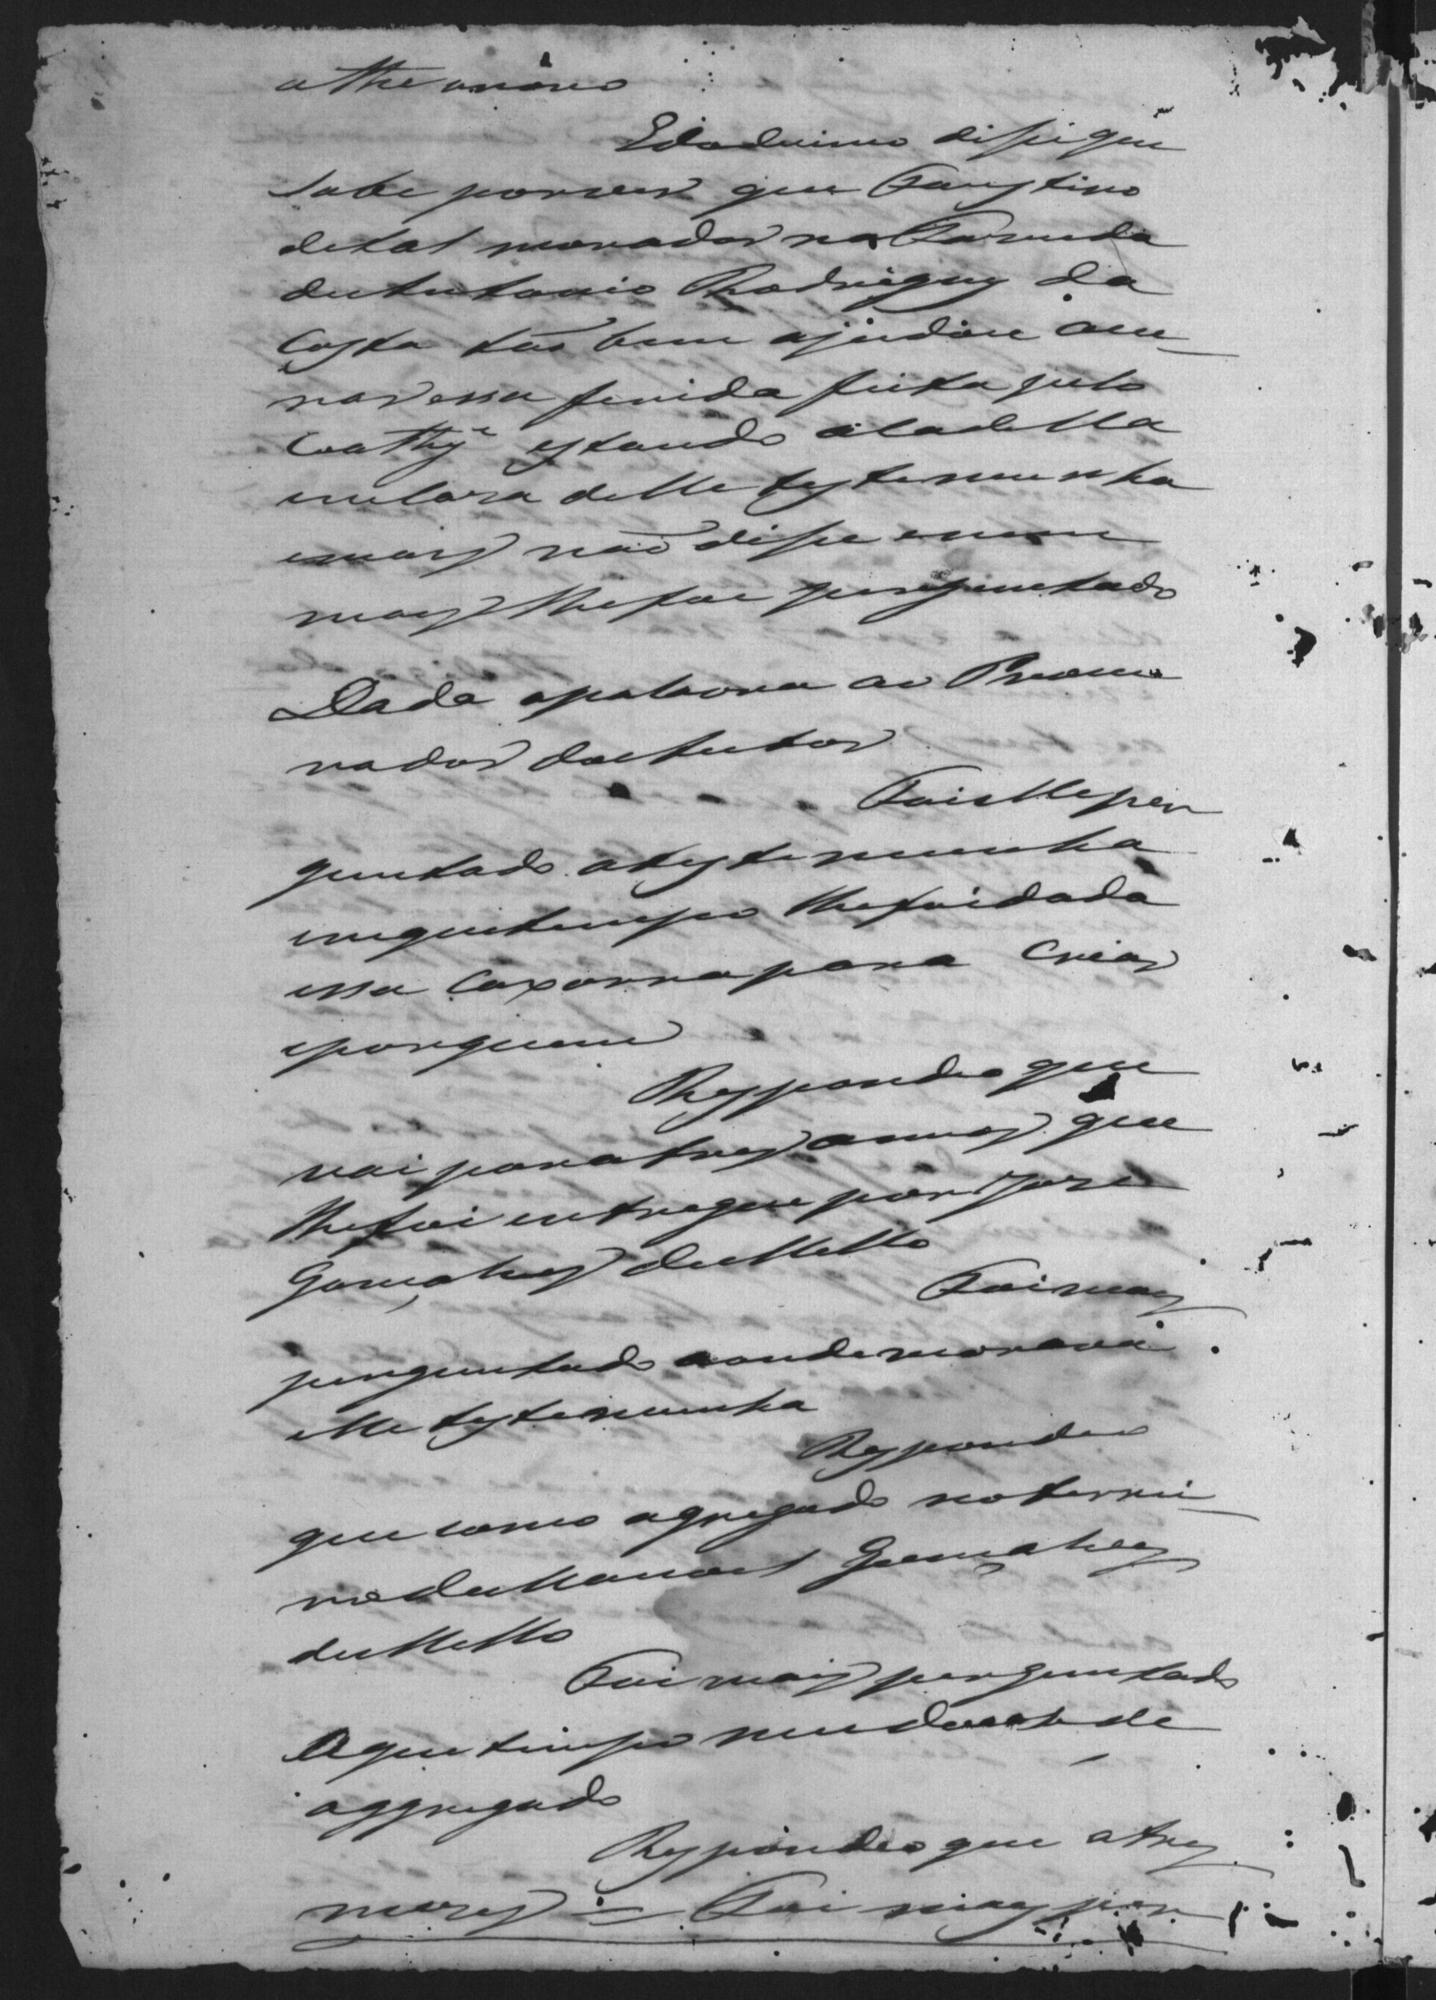 a the
E do decimo disse que
sabe por ver que Faustino
de tal morador na Fazenda
de Antonio Rodrigues da
Costa tão bem ajudou a cu
rar essa ferida feita pelo
estando a cadella
em casa delle testemunha
e mais não disse e nem
mais lhe foi perguntado
Dada a palavra ao Procu
rador do Autor
Foi lhe per
guntado a testemunha
em que tempo lhe foi dada
essa caxorra para criar
e por quem
Respondeo que
vai para tres annos que
lhe foi entregue por José
Gonçalves de Mello
Foi mais
perguntado aonde morava
elle testemunha
Respondeo
que como agregado no terre
no de Manoel Gonçalves
de Mello
Foi mais perguntado
A que tempo mudou de
aggregado
Respondeo que a tres
mezes = Foi mais per